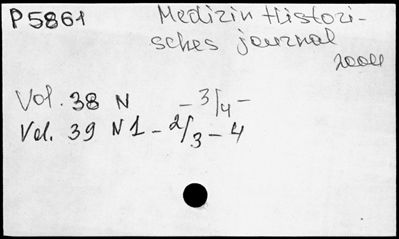 P5861 Medizin Histori-
sches journal
Vol. 38 N - 3/4 -
Vol. 39 N 1 - 2/3 - 4